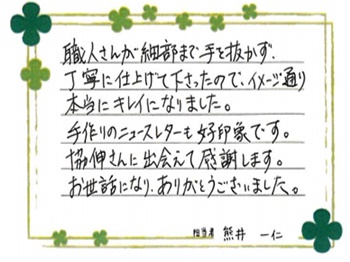 職人さんが細部まで手を抜かず、
丁寧に仕上げて下さったので、イメージ通り
本当にキレイになりました。
手作りのニュースレターも好印象です。
協伸さんに出会えて感謝します。
お世話になり、ありがとうございました。
担当者 熊井 一仁